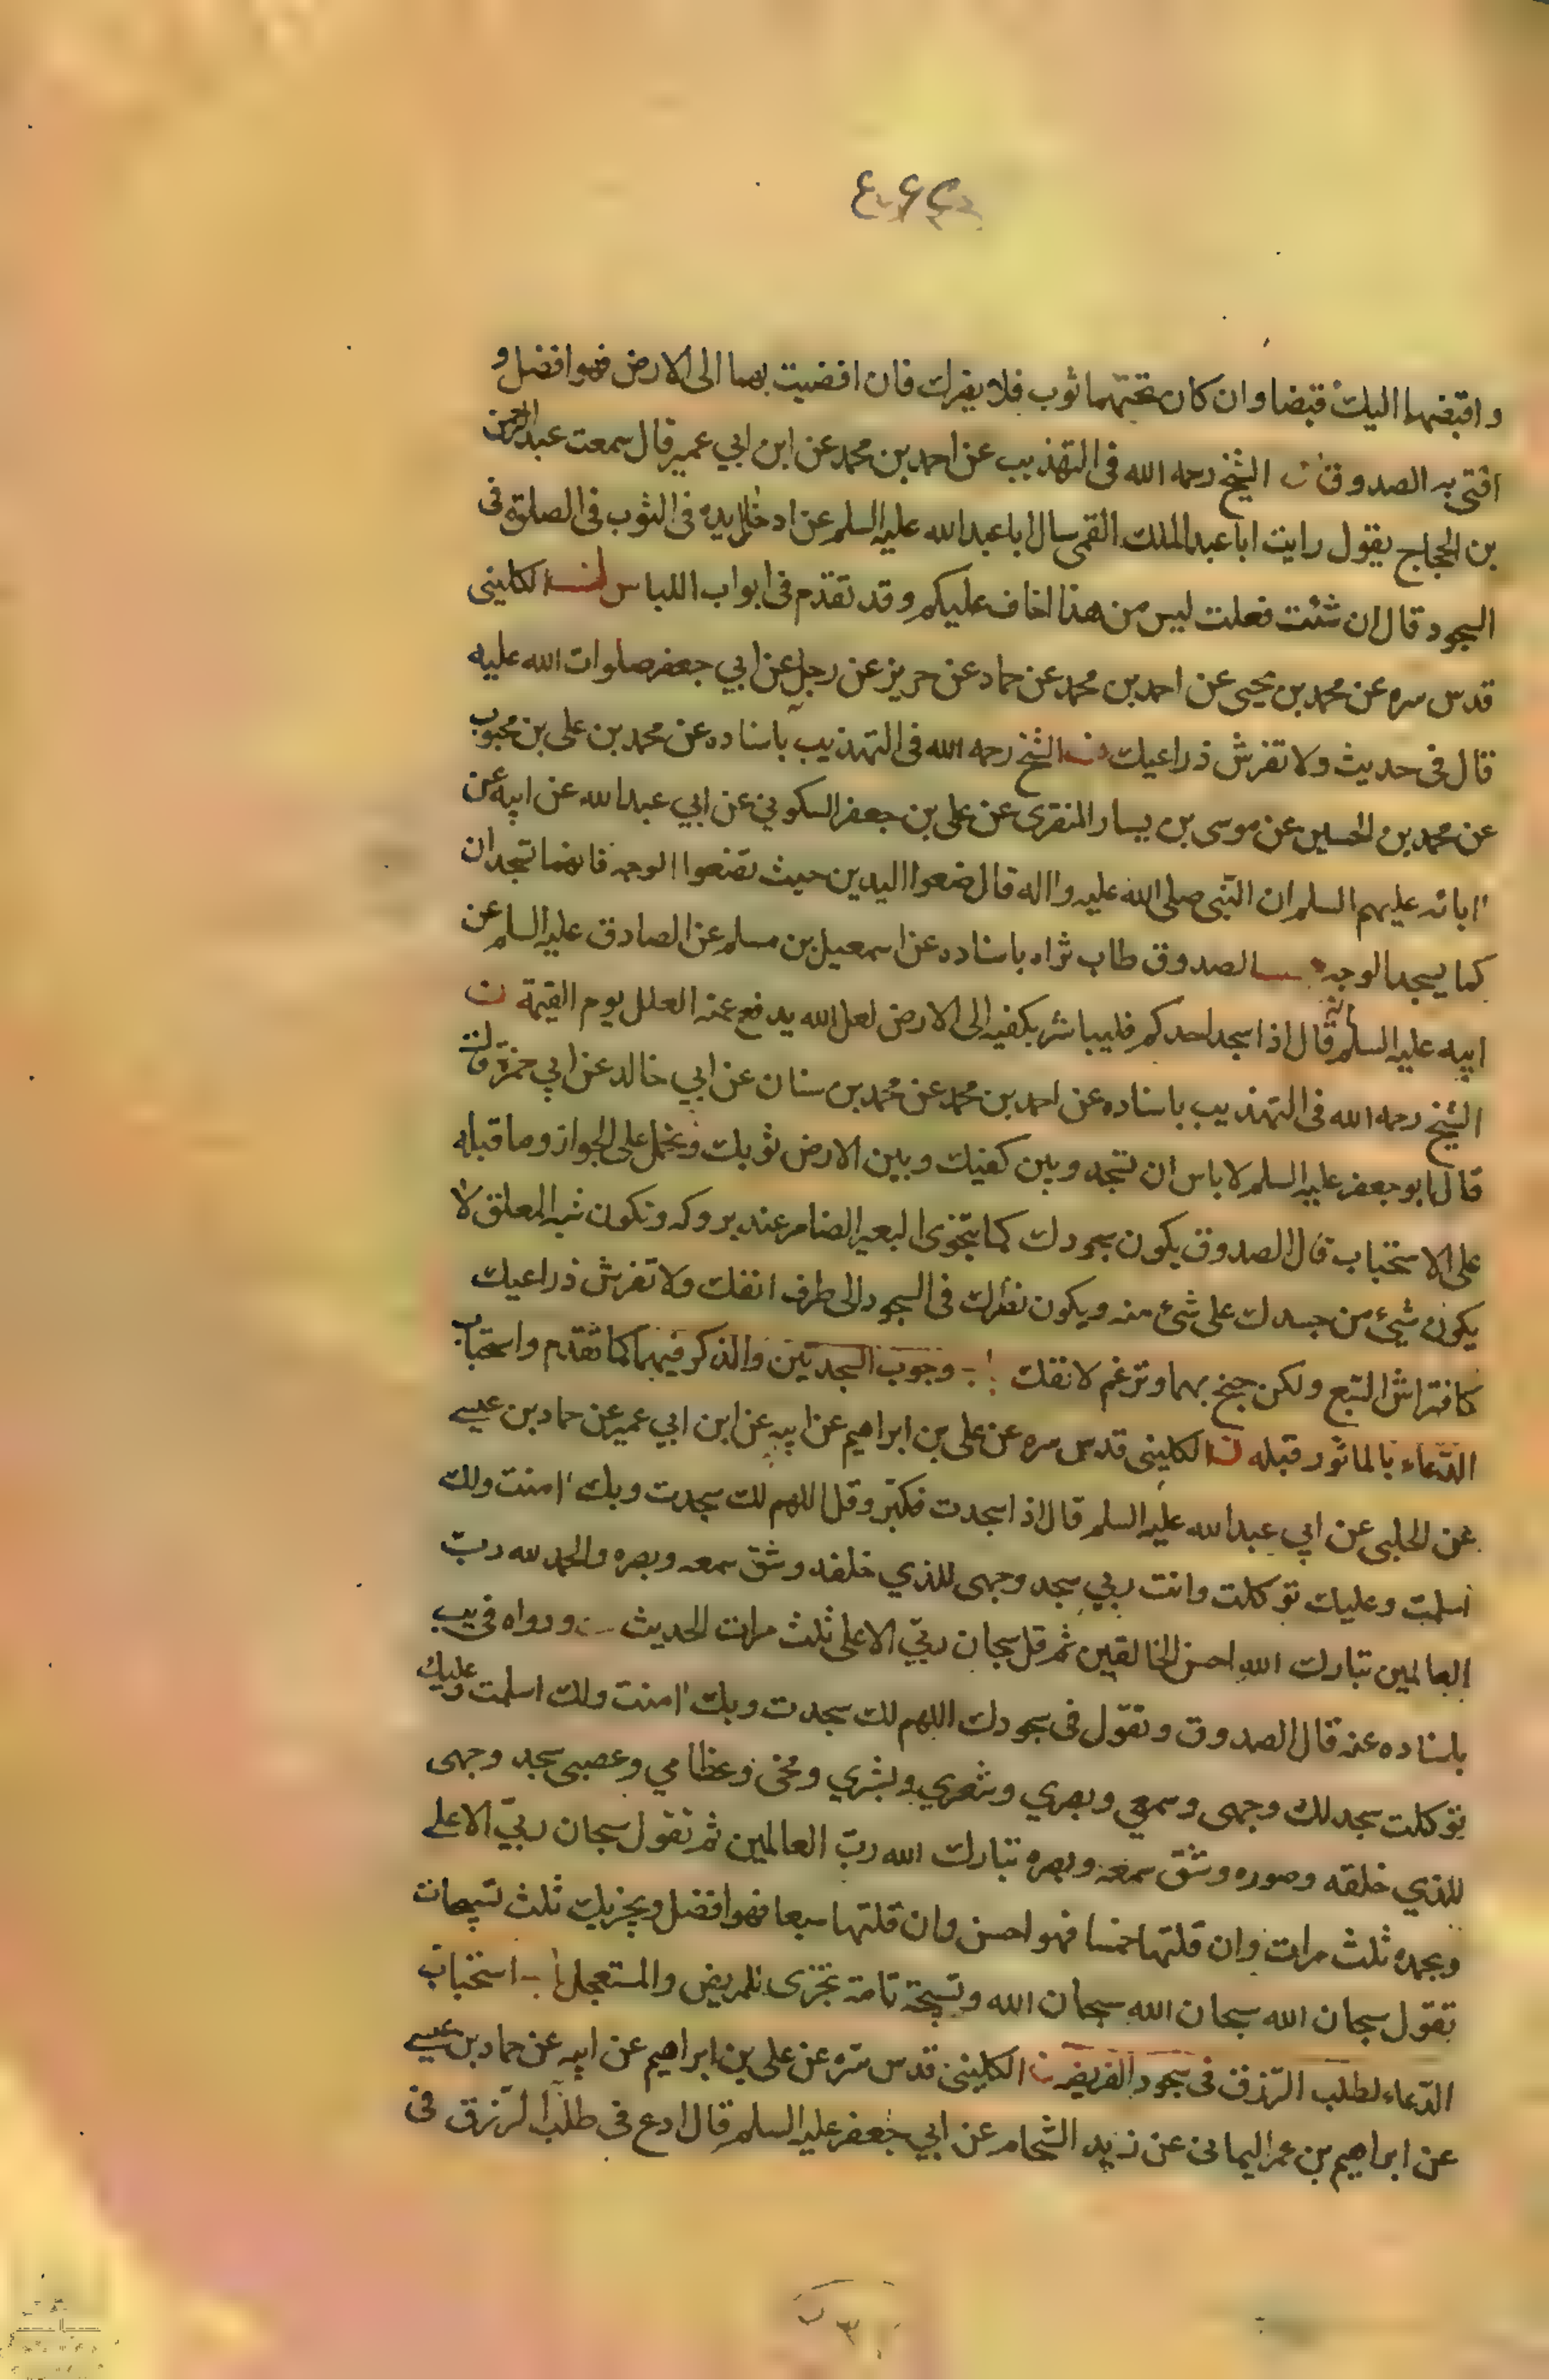 واقبضهما اليك قبضا وان كان تحتهما ثوب فلا يضرك فان افضيت بهما الى الارض فهو افضل و
افتى به الصدوق الشيخ رحمه الله فى التهذيب عن احمد بن محمد عن ابن ابي عمير قال سمعت عبد الرحمن
بن الحجاج يقول رايت ابا عبد الملك القمى سال ابا عبد الله عليه السلم عن ادخال يده فى الثوب فى الصلوة فى
السجود قال ان شئت فعلت ليس من هذا اخاف عليكم وقد تقدم فى ابواب اللباس الكلينى
قدس سره عن محمد بن يحيى عن احمد بن محمد عن حماد عن حريز عن رجل عن ابي جعفر صلوات الله عليه
قال فى حديث ولا تفرش ذراعيك الشيخ رحمه الله فى التهذيب باسناده عن محمد بن على بن محبوب
عن محمد بن الحسين عن موسى بن يسار المنقرى عن على بن جعفر السكوني عن ابي عبد الله عن ابيه عن
ابائه عليهم السلم ان النبى صلى الله عليه واله قال ضعوا اليدين حيث تضعوا الوجه فانهما تسجدان
كما يسجد الوجه الصدوق طاب ثراه باسناده عن اسمعيل بن مسلم عن الصادق عليه السلم عن
ابيه عليه السلم انه قال اذا سجد احدكم فليباشر بكفيه الى الارض لعل الله يدفع عنه الغلل يوم القيمة ن
الشيخ رحمه الله فى التهذيب باسناده عن احمد بن محمد عن محمد بن سنان عن ابي خالد عن ابي حمزة قال
قال ابو جعفر عليه السلم لا باس ان تسجد وبين كفيك وبين الارض ثوبك ويحمل على الجواز وما قبله
على الاستحباب قال الصدوق يكون سجودك كما يتخوى البعير الضامر عند بروكه وتكون شبه المعلق لا
يكون شيئ من جسدك على شئ منه ويكون نظرك فى السجود الى طرف انفك ولا تفرش ذراعيك
كافتراش السبع ولكن جنح بهما وترغم لانفك وجوب السجدتين والذكر فيهما كما تقدم واستحباب
الدعاء بالماثور قبله ن الكلينى قدس سره عن على بن ابراهيم عن ابيه عن ابن ابي عمير عن حماد بن عيسى
عن الحلبى عن ابي عبد الله عليه السلم قال اذا سجدت فكبر وقل اللهم لك سجدت وبك امنت ولك
اسلمت وعليك توكلت وانت ربي سجد وجهى للذي خلقه وشق سمعه وبصره والحمد لله رب
العالمين تبارك الله احسن الخالقين ثم قل سبحان ربي الاعلى ثلث مرات الحديث ورواه فى يب
باسناده عنه قال الصدوق وتقول فى سجودك اللهم لك سجدت وبك امنت ولك اسلمت وعليك
توكلت سجد لك وجهى وسمعي وبصري وشعري وبشري ومخى وعظامي وعصبى سجد وجهى
للذي خلقه وصوره وشق سمعه وبصره تبارك الله رب العالمين ثم تقول سبحان ربي الاعلى
وبحمده ثلث مرات وان قلتها خمسا فهو احسن وان قلتها سبعا فهو افضل ويجزيك ثلث تسبيحات
تقول سبحان الله سبحان الله سبحان الله وتسبيحة تامة تجزى للمريض والمستعجل استحباب
الدعاء لطلب الرزق فى سجود الفريضه ن الكلينى قدس سره عن على بن ابراهيم عن ابيه عن حماد بن عيسى
عن ابراهيم بن عمر اليمانى عن زيد الشحام عن ابي جعفر عليه السلم قال ادع فى طلب الرزق فى